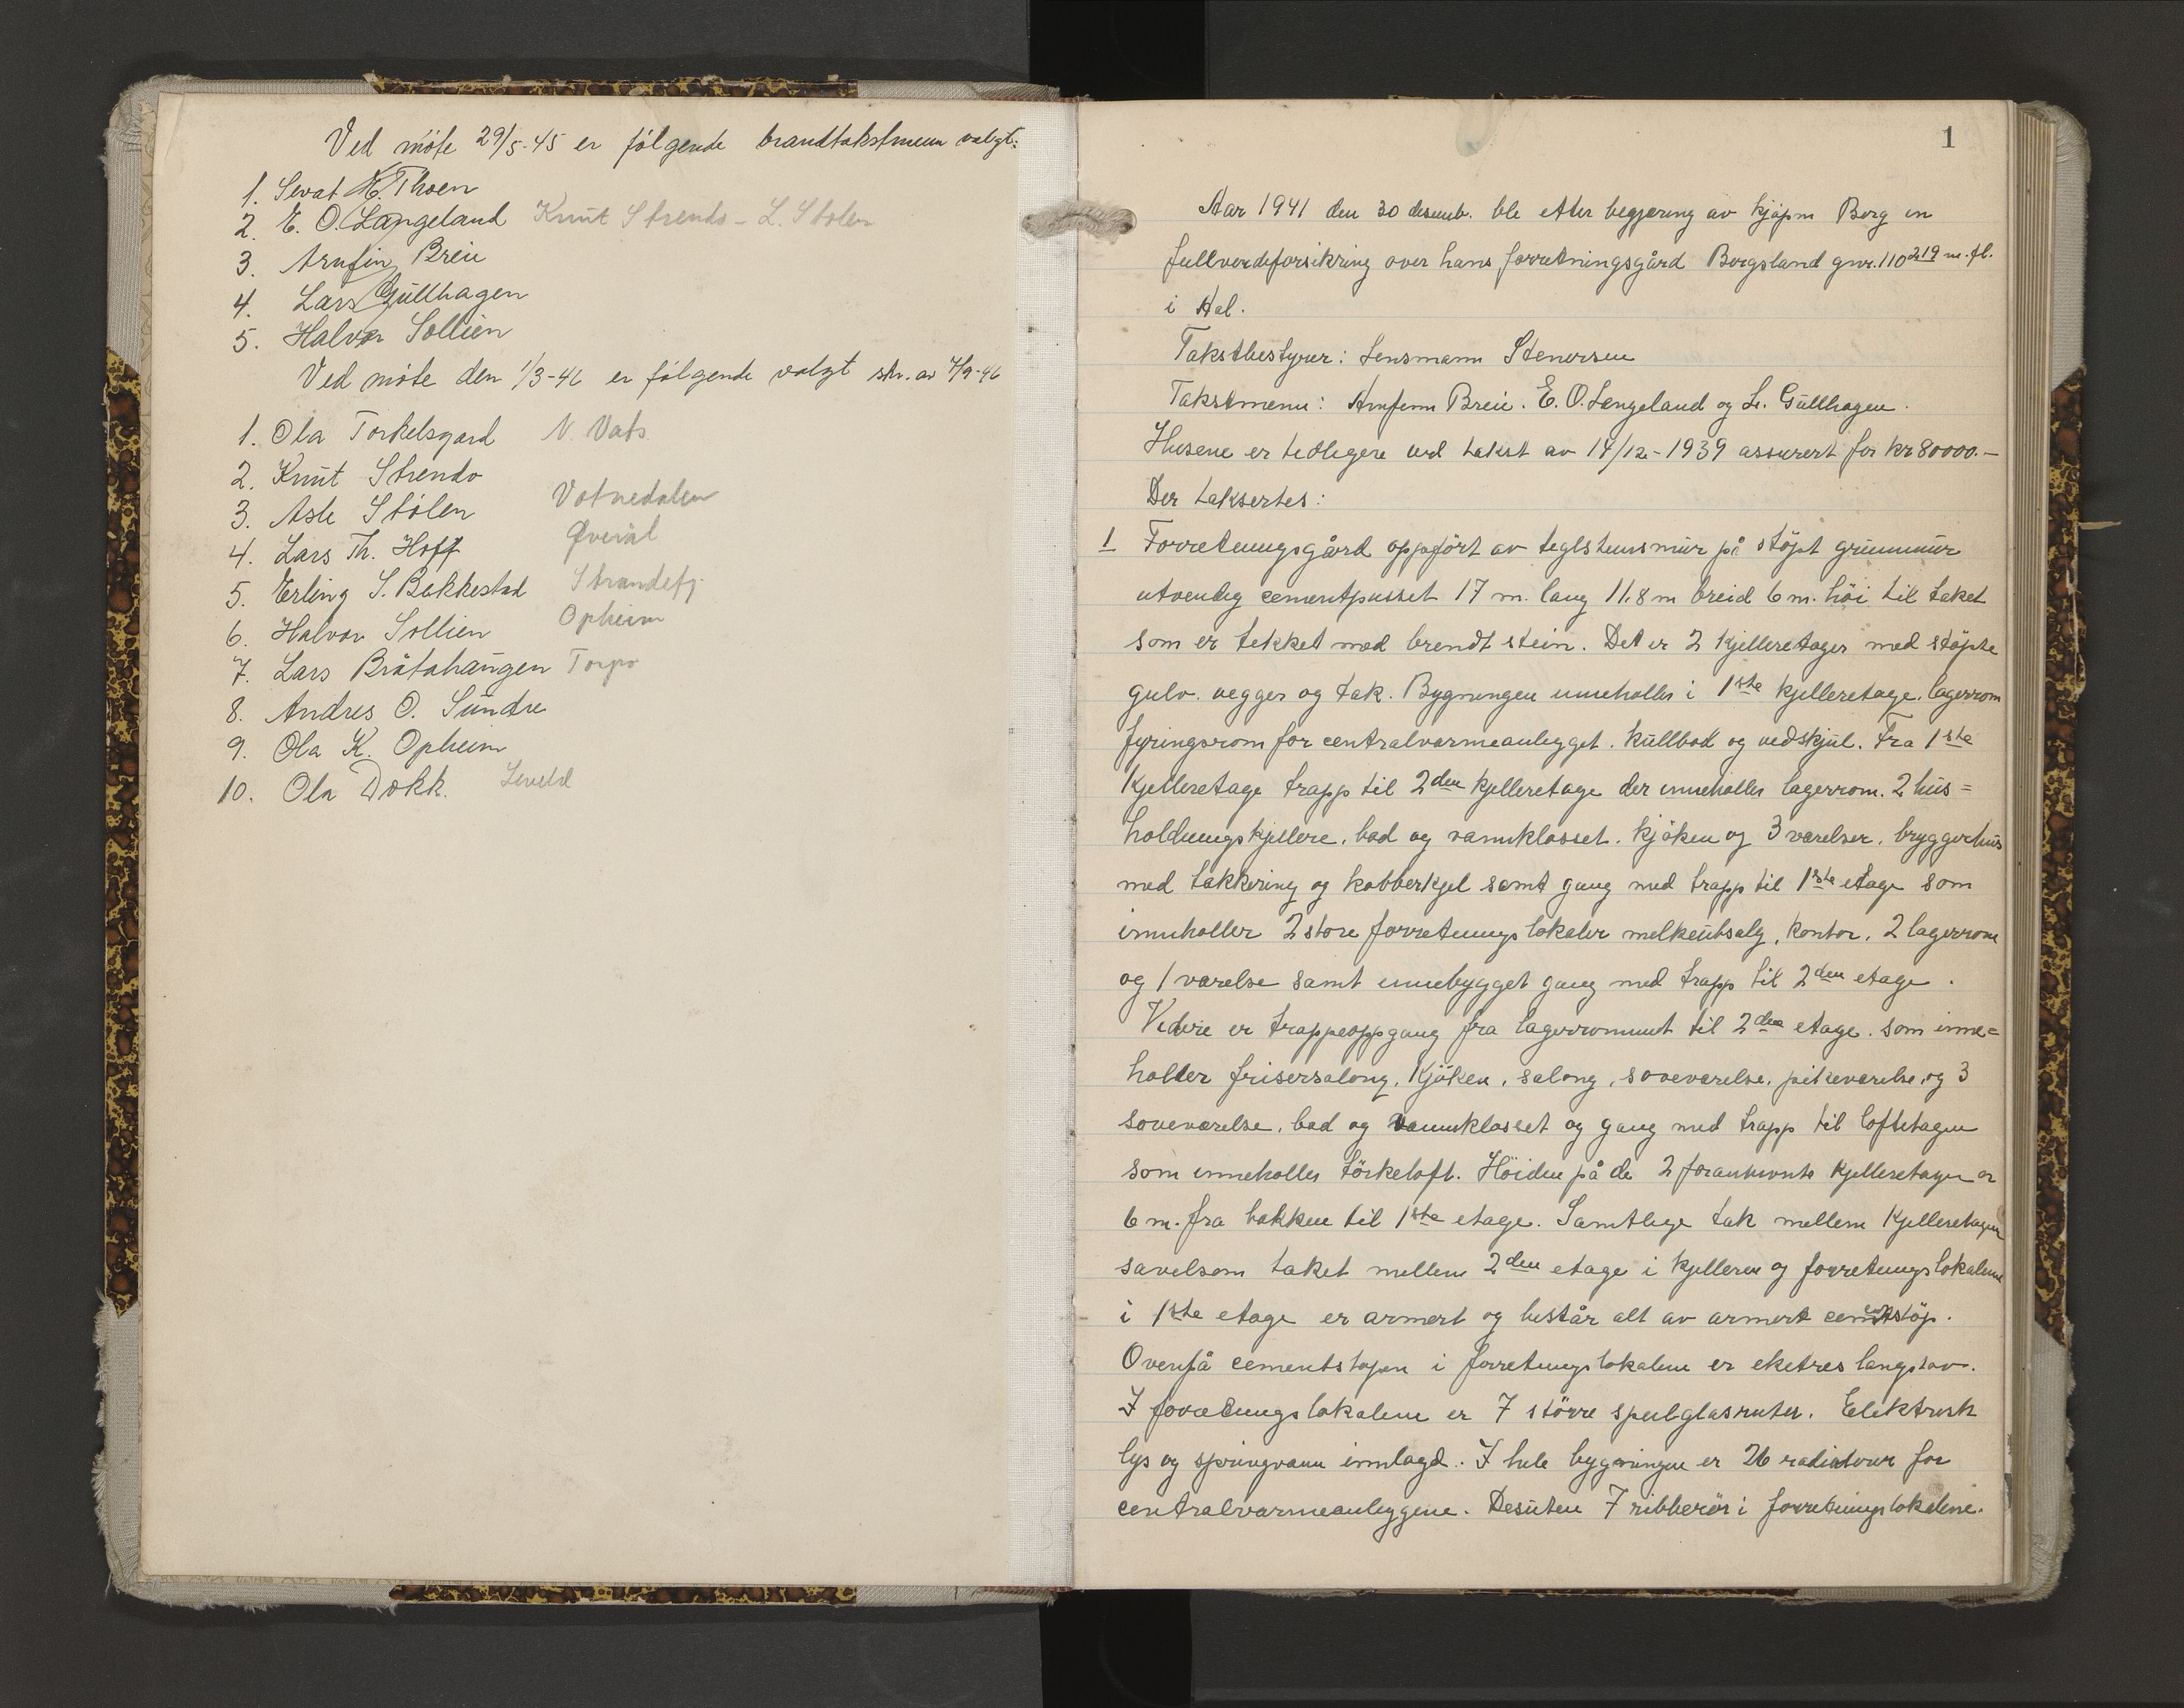 Ved möte 29/5-45 er fölgende brandtakstmenn valgt:
1. Sevat H. Thoen
2. E. O. Langeland Knut Strendo - L. Stolen
3. Arnfin Breie
4. Lars Gullhagen
5. Halvor Sollien
Ved möte den 1/3-46 er fölgende valgt skr. av 7/9-46
1. Ola Torkelsgard N. Vats
2. Knut Strendo
3. Asle Stölen Votnedalen
4. Lars Th. Hoff Qverål
5. Erling S. Bakkestad Strandefj.
6. Halvor Sollien Opheim
7. Lars Bråtahaugen Torpo
8. Andres O. Sundre
9. Ola K. Opheim
10. Ola Dokk. Leveld
1
Aar 1941 den 30 desemb. ble etter begjæring av kjöpm Borg en
fullverdeforsikring over hans forretningsgård Borgsland gnr. 110 219 m. fl.
i Aal.
Takstbestyrer: Lensmann Stenersen
Takstmenn: Arnfinn Breie. E. O. Langeland og L. Gullhagen.
Husene er tidligere ved takst av 14/12-1939 assurert for kr 80000.-
Der taksertes:
1 Forretningsgård oppfört av teglstensmur på stöpt grunnmur
utvendig cementpusset 17 m. lang 11.8 m breid 6 m. höi til taket
som er tekket med brendt stein. Det er 2 kjelleretager med stöpte
gulv. vegger og tak. Bygningen inneholler i 1ste kjelleretage. lagerrom
fyringsrom for centralvarmeanlegget. kullbod og vedskjul. Fra 1ste
kjelleretage trapp til 2den kjelleretage der inneholler lagerrom. 2 hus=
holdningskjellere. bad og vannklosset. kjöken og 3 værelser. bryggerhus
med takkering og kobberkjel samt gang med trapp til 1ste etage som
inneholler 2 store forretningslokaler melkeutsalg, kontor, 2 lagerrom
og 1 værelse samt innebygget gang med trapp til 2den etage.
Videre er trappeoppgang fra lagerrommet til 2den etage. som inne=
holler frisersalong, kjöken, salong, soveværelse, pikeværelse, og 3
soveværelse, bad og vannklosset og gang med trapp til loftetagen
som inneholler törkeloft. Höiden på de 2 forannevnte kjelleretager er
6 m. fra bakken til 1ste etage. Samtlige tak mellem kjelleretagen
savelsom taket mellem 2den etage i kjelleren og forretningslokalene
i 1ste etage er armert og består alt av armert cementstöp.
Ovenpå cementstöpen i forretningslokalene er eketres langstav.
I forretningslokalene er 7 större speilglasruter. Elektrisk
lys og springvann innlagd. I hele bygningen er 26 radiatorer for
centralvarmeanleggene. Desuten 7 ribberör i forretningslokalene.